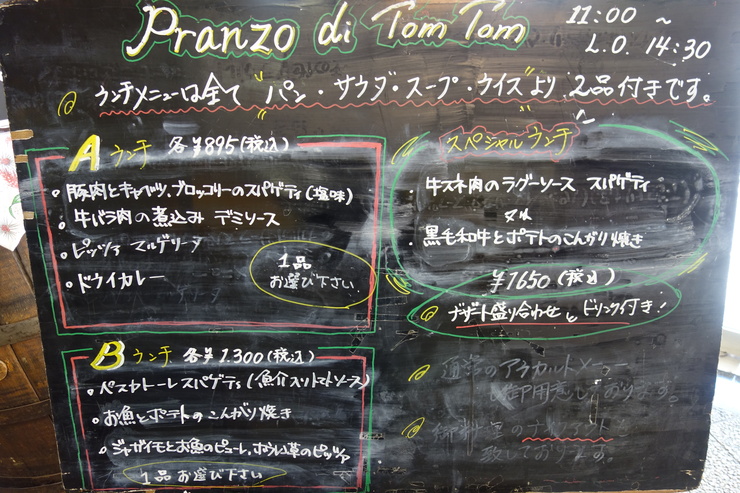 Pranzo di Tom Tom
11:00 ~
L.O. 14:30
ランチメニューは全て "パン・サラダ・スープ・ライス"より 2品付きです。
A ランチ 各¥895(税込)
・豚肉とキャベツ、ブロッコリーのスパゲティ(塩味)
・牛バラ肉の煮込み デミソース
・ピッツァ マルゲリータ
・ドライカレー
1品
お選び下さい
B ランチ 各¥1.300(税込)
・ペスカトーレ スパゲティ(魚介入りトマトソース)
・お魚とポテトのこんがり焼き
・ジャガイモとお魚のピューレ、ほうれん草のピッツァ
1品お選び下さい
スペシャルランチ
・牛スネ肉のラグーソース スパゲティ
又は
・黒毛和牛とポテトのこんがり焼き
¥1650(税込)
デザート盛り合わせとドリンク付き!
通常のアラカルトメニュー
も御用意しております。
致しております。